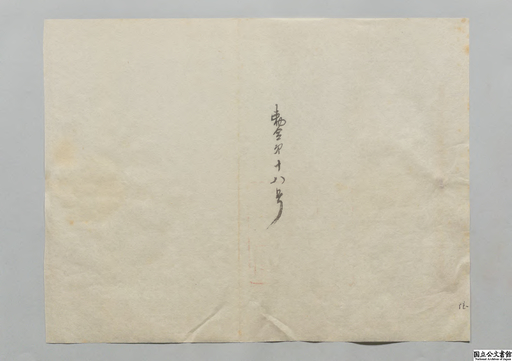 勅令第十八号
国立公文書館
National Archives of Japan